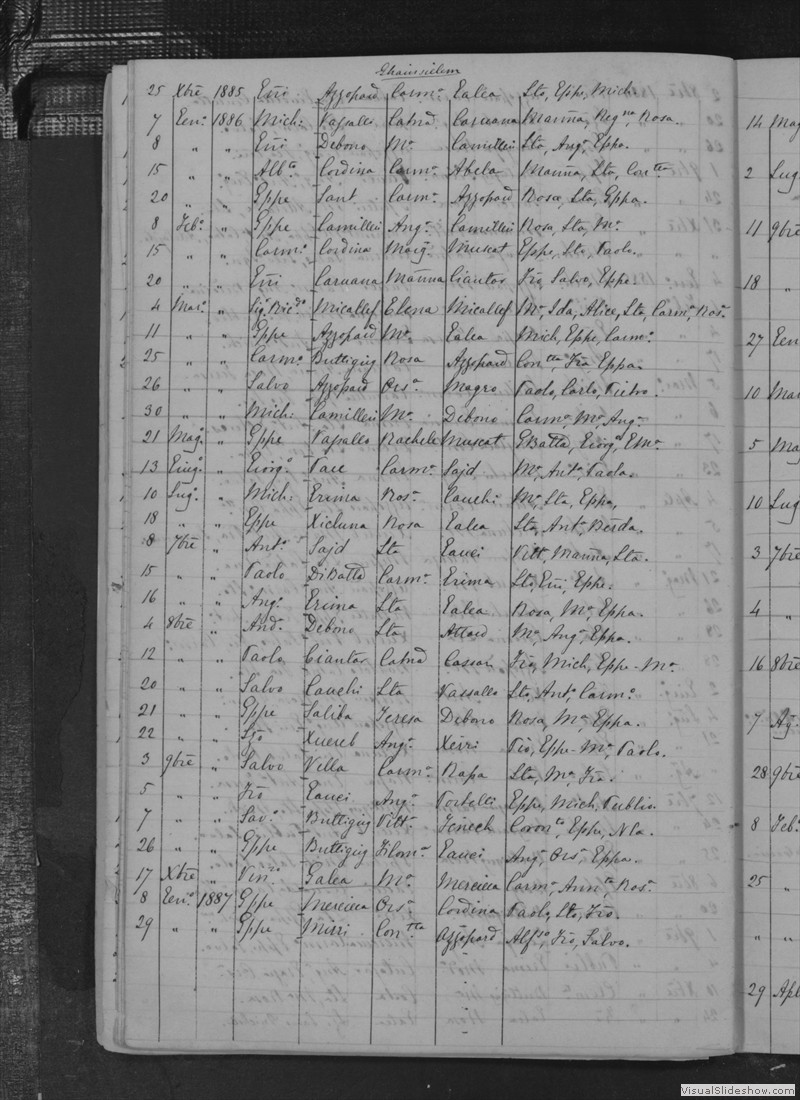 Ghainsielem
25 Xbre 1885 Eñi Azzopard Carm.a Galea Sta, Gppe, Mich.
7 Gen.o 1886 Mich: Vassallo Catnā Caruana Marīna, Reg.na, Rosa.
8 „ „ Eñi Debono M.a Camilleri Sta, Ang.a, Gppa.
15 „ „ Alb.to Cordina Carm.a Abela Marīna, Sta, Con.tta
20 „ „ Gppe Sant Carm.a Azzopard Rosa, Sta, Gppa.
8 Feb.o „ Gppe Camilleri Ang.a Camilleri Rosa, Sta, M.a
15 „ „ Carm.o Cordina Marg.a Muscat Gppe, Sta, Paolo.
20 „ „ Eñi Caruana Marīna Ciantar Frō, Salvo, Gppe.
4 Mar.o „ Sig. Ric.do Micallef Elena Micallef M.a, Ida, Alice, Sta, Carm.a, Ros.a
11 „ „ Gppe Azzopard M.a Galea Mich, Gppe, Carm.o
25 „ „ Carm.o Buttigieg Rosa Azzopard Con.tta, Frā, Gppa.
26 „ „ Salvo Azzopard Ors.a Magro Paolo, Carlo, Pietro.
30 „ „ Mich: Camilleri M.a Debono Carm.a, M.a, Ang.a
21 Mag.o „ Gppe Vassallo Rachele Muscat GBatta, Giorg.o, Em.o
13 Giug.o „ Giorg.o Pace Carm.a Sajd M.a, Ant.a, Paola.
10 Lug.o „ Mich: Grima Ros.a Cauchi M.a, Sta, Gppa,
18 „ „ Gppe Xicluna Rosa Galea Sta, Ant.a, Berda.
8 7bre „ Ant.o Sajd Sta Gauci Vitt.a, Marīna, Sta.
15 „ „ Paolo DiBattā Carm.a Grima Sta, Eñi, Gppe.
16 „ „ Ang.o Grima Sta Galea Rosa, M.a, Gppa.
4 8bre „ And.a Debono Sta Attard M.a, Ang.a, Gppa.
12 „ „ Paolo Ciantar Catnā Cassar Frō, Mich, Gppe-M.a
20 „ „ Salvo Cauchi Sta Vassallo Sta, Ant.a, Carm.o
21 „ „ Gppe Saliba Teresa Debono Rosa, M.a, Gppa.
22 „ „ Frō Xuereb Ang.a Xerri Pio, Gppe-M.a, Paolo.
3 9bre „ Salvo Vella Carm.a Rapa Sta, M.a, Frā.
5 „ „ Frō Gauci Ang.a Portelli Gppe, Mich, Publio.
7 „ „ Sav.o Buttigieg Vitt.a Zenech Coron.ta, Gppe, Nla.
26 „ „ Gppe Buttigieg Filom.a Gauci Ang.a, Ors.a, Gppa.
17 Xbre „ Vin.zo Galea M.a Mercieca Carm.a, Ann.ta, Ros.a
8 Gen.o 1887 Gppe Mercieca Ors.a Cordina Paolo, Sta, Frō.
29 „ „ Gppe Mizzi Con.tta Azzopard Alf.so, Frō, Salvo.
14 Mag
2 Lug
11 9bre
18 „
27 Gen
10 Mar
5 Mag
10 Lug
3 7bre
4 „
16 8bre
7 Ag.
28 9bre
8 Feb.
25 „
„ „
29 Apl
VisualSlideshow.com